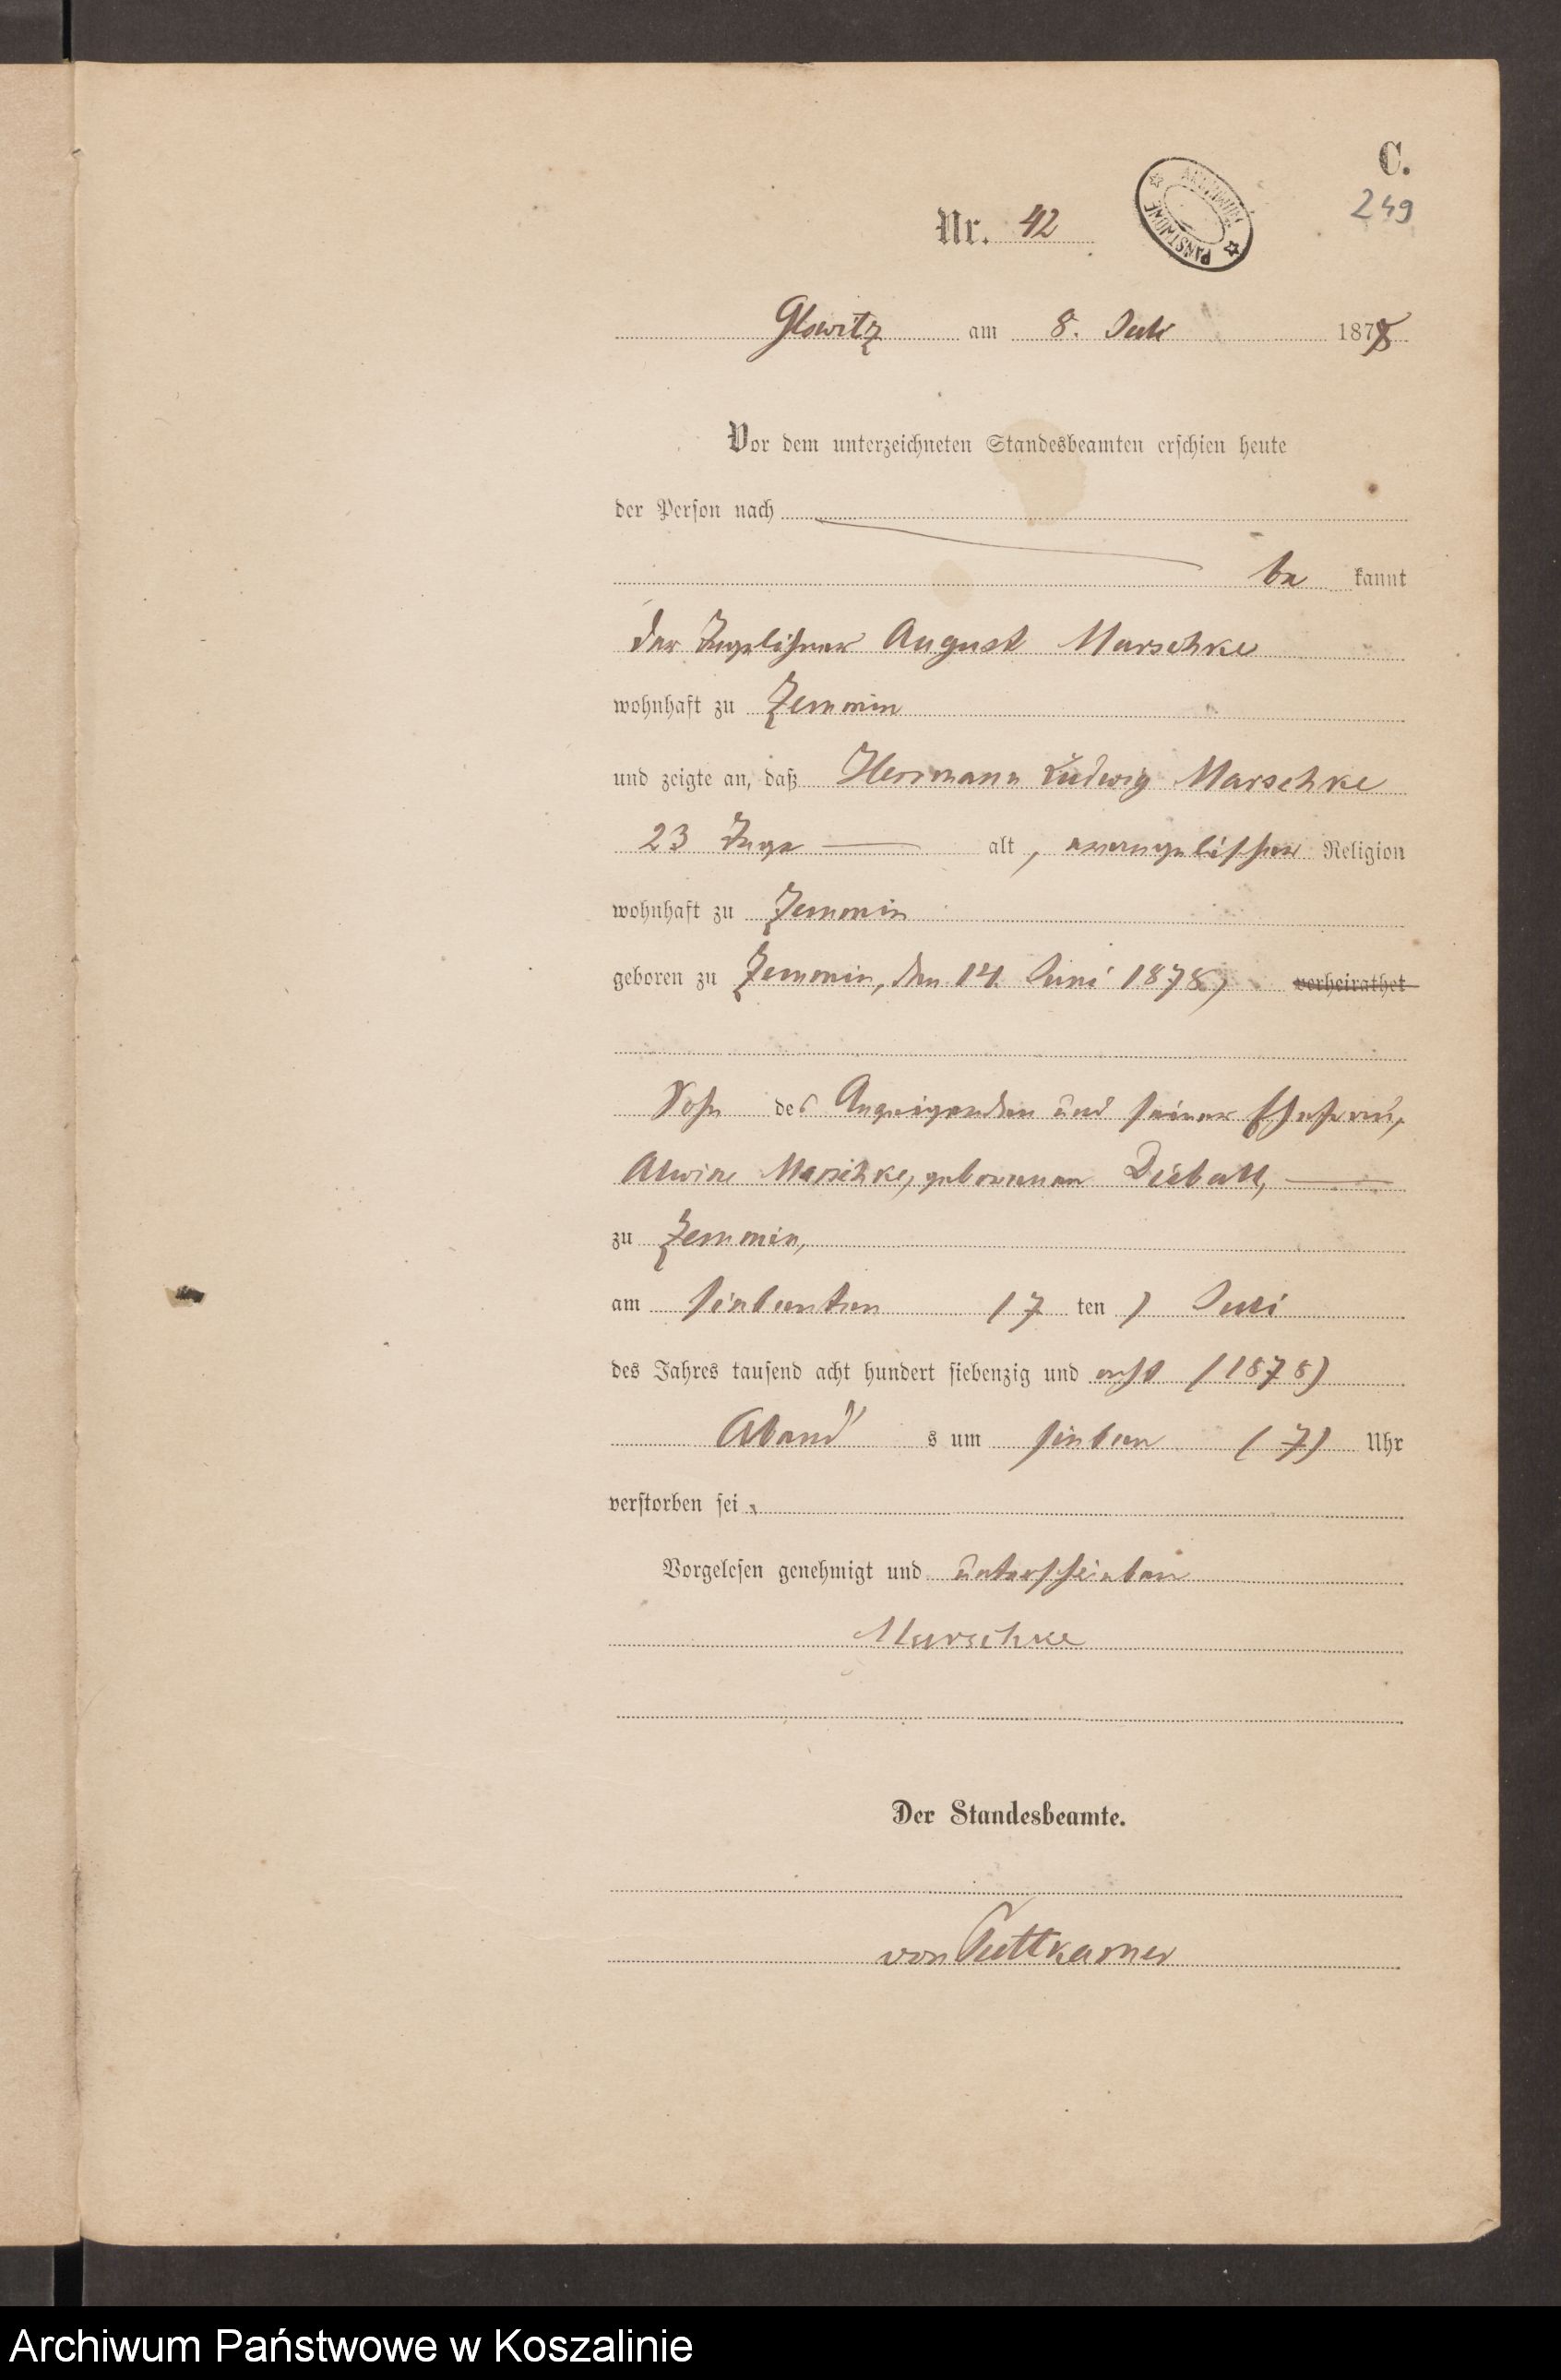 C.
249
Nr. 42
ARCHIWUM PAŃSTWOWE
Glowitz am 8. Juli 1878
Vor dem unterzeichneten Standesbeamten erschien heute
der Person nach
be kannt
der Tagelöhner August Marschke
wohnhaft zu Zemmin
und zeigte an, daß Hermann Ludwig Marschke
23 Tage alt, evangelischer Religion
wohnhaft zu Zemmin
geboren zu Zemmin, den 14. Juni 1878, verheirathet
Sohn des Anzeigenden und seiner Ehefrau,
Alwine Marschke, geborenen Dieball,
zu Zemmin,
am siebenten (7 ten) Juli
des Jahres tausend acht hundert siebenzig und acht (1878)
Abend s um sieben (7) Uhr
verstorben sei.
Vorgelesen genehmigt und unterschrieben
Marschke
Der Standesbeamte.
von Puttkamer
Archiwum Państwowe w Koszalinie